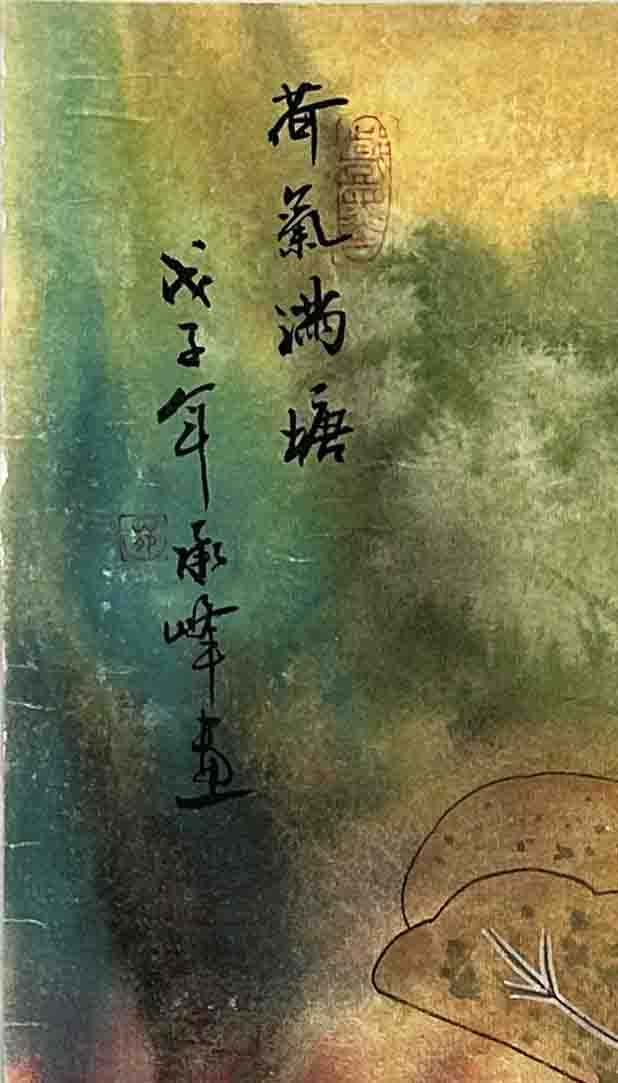 荷氣滿塘
戊子年承峰畫